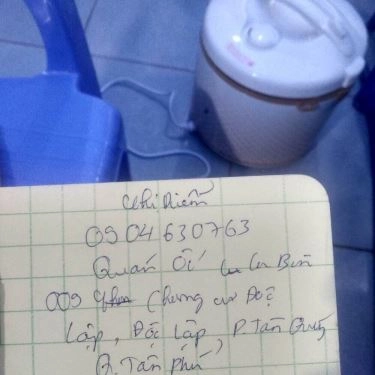 Chị Diễm
0904630763
Quán Ốc
009 Chung cư Độc
Lập, Độc Lập, P. Tân Quý,
Q. Tân Phú